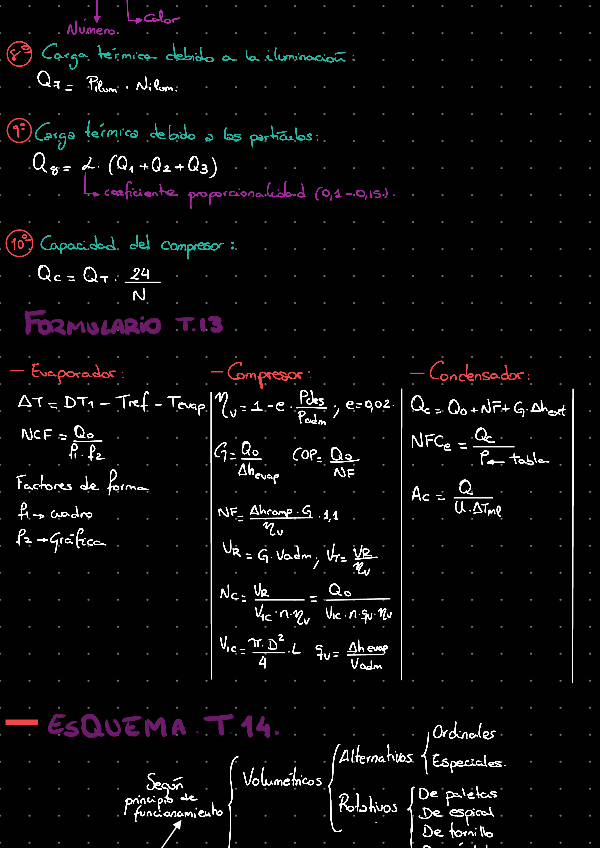 Numero.
Calor
8º Carga térmica debido a la iluminación:
Q7 = Pilum · Nilum.
9º Carga térmica debido a las partículas:
Q8 = α · (Q1 + Q2 + Q3)
coeficiente proporcionalidad (0,1 - 0,15).
10º Capacidad del compresor:
Qc = QT · 24/N
FORMULARIO T.13
— Evaporador:
ΔT = DT1 - Tref - Tevap.
NCF = Q0/(f1 · f2)
Factores de forma
f1 → cuadro
f2 → Gráfica
— Compresor:
ηv = 1 - e · Pdes/Padm ; e=0,02.
G = Q0/Δhevap COP = Q0/NF
NF = (Δhcomp · G)/ηv · 1,1
VR = G · Vadm; VT = VR/ηv
NC = VR/(V1c · n · ηv) = Q0/(V1c · n · qv · ηv)
V1c = (π · D²)/4 · L qv = Δhevap/Vadm
— Condensador:
Qc = Q0 + NF + G · Δhext
NFCe = Qc/P ← tabla
Ac = Q/(U · ΔTml)
— ESQUEMA T.14.
Según principio de funcionamiento
Volumétricos
Alternativos
Ordinales
Especiales.
Rotativos
De paletas
De espiral
De tornillo